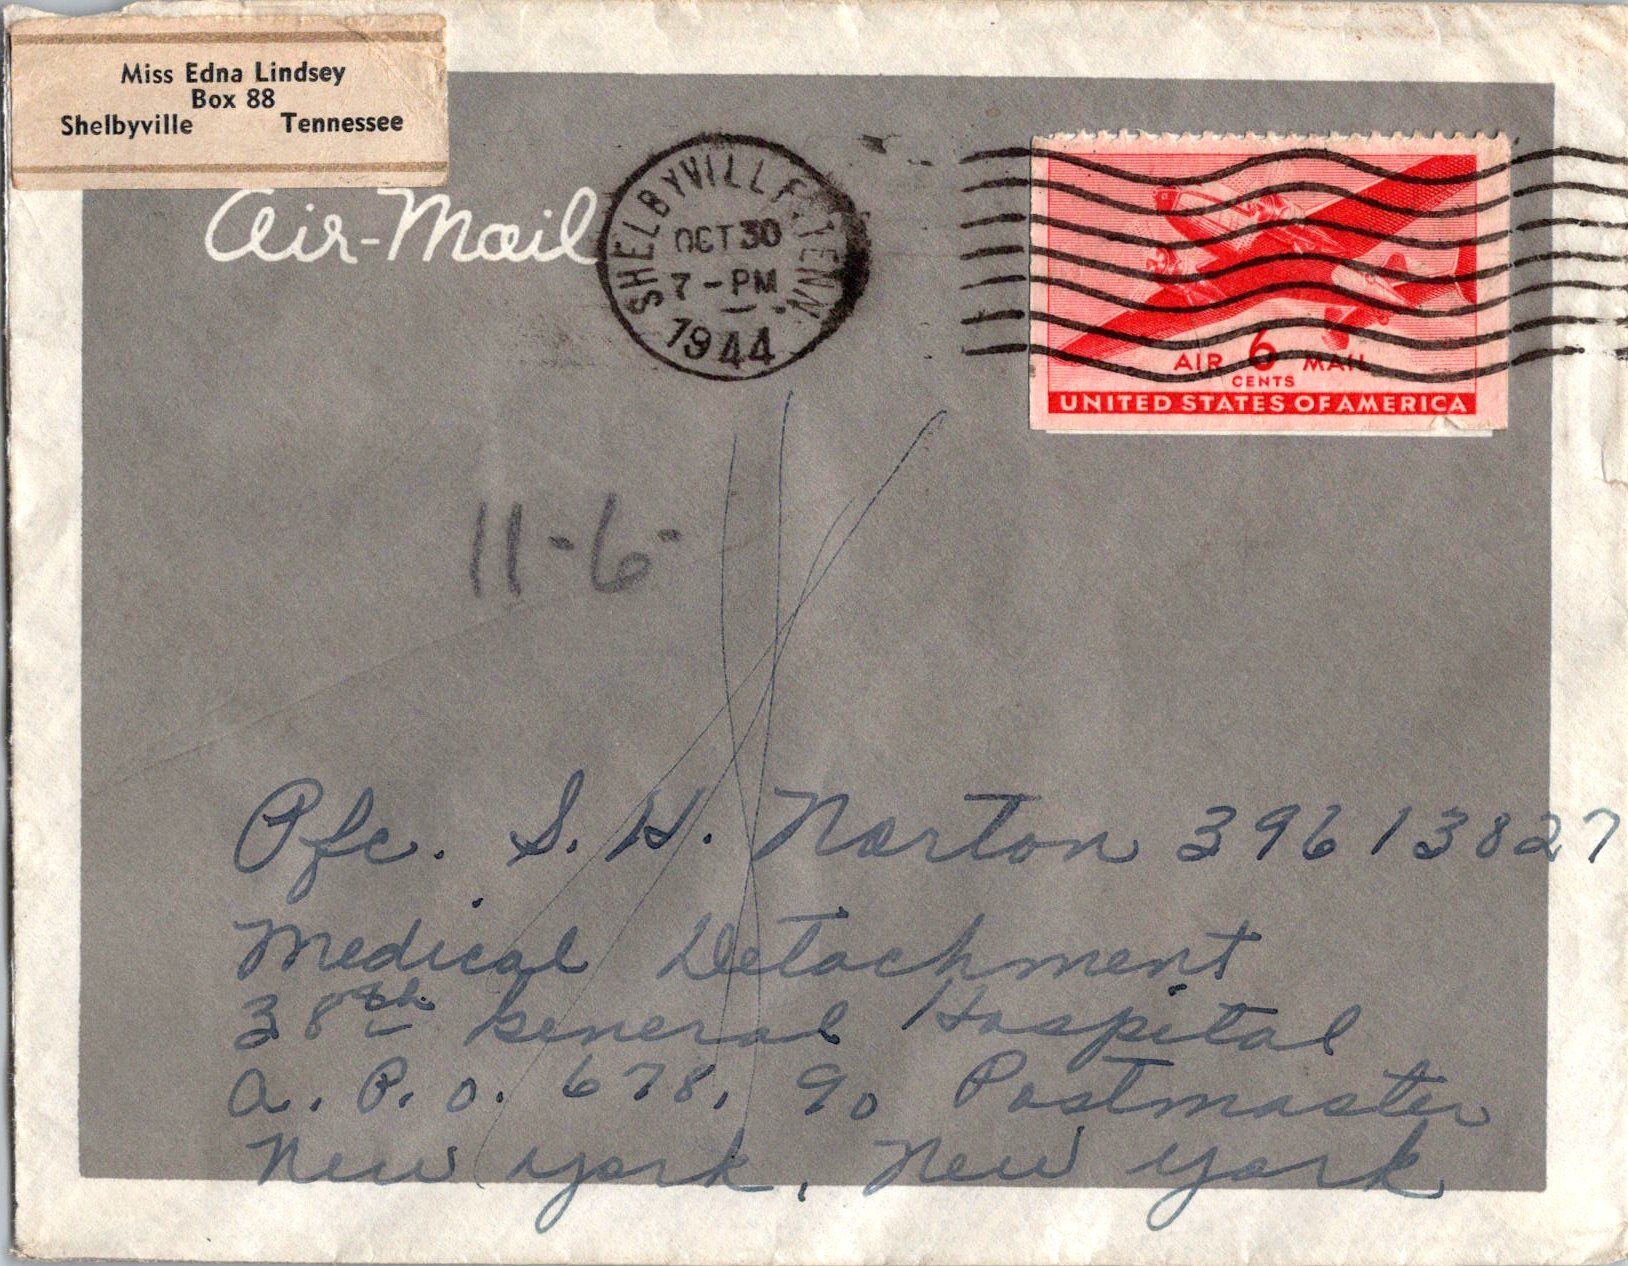 Miss Edna Lindsey
Box 88
Shelbyville Tennessee
Air-Mail
SHELBYVILLE, TENN.
OCT 30
7-PM
1944
AIR 6 MAIL
CENTS
UNITED STATES OF AMERICA
11-6-
Pfc. S. H. Norton 39613827
Medical Detachment
38th General Hospital
A. P. O. 678, % Postmaster
New York, New York